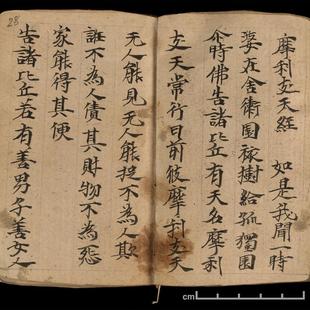 28
摩利支天經　如是我聞一時
婆在舍衛國祇樹給孤獨園
尒時佛告諸比丘有天名摩利
支天常行日前彼摩利支天
无人能見无人能捉不為人欺
誑不為人債其財物不為怨
家能得其便
告諸比丘若有善男子善女人
cm